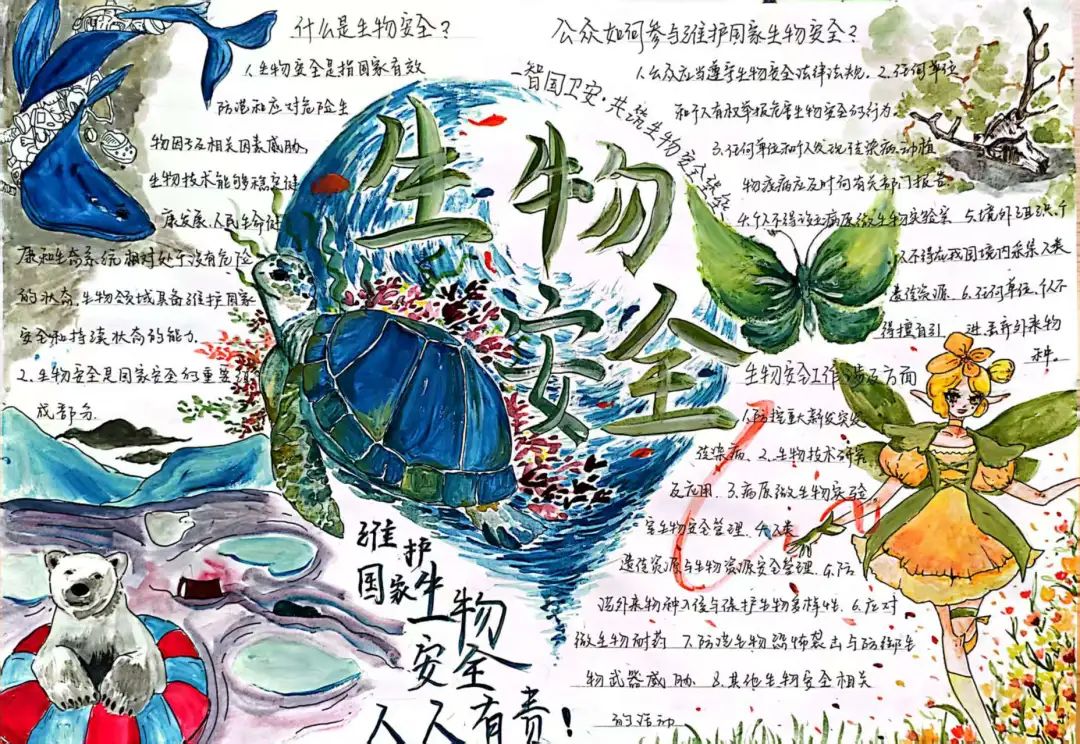 什么是生物安全?
1.生物安全是指国家有效
防范和应对危险生
物因子及相关因素威胁,
生物技术能够稳定健
康发展,人民生命健
康和生态系统相对处于没有危险
的状态,生物领域具备维护国家
安全和持续状态的能力.
2.生物安全是国家安全的重要组
成部分.
公众如何参与维护国家生物安全?
1.公众应当遵守生物安全法律法规. 2.任何单位
和个人有权举报危害生物安全的行为.
3.任何单位和个人发现传染病、动植
物疫病应及时向有关部门报告.
4.个人不得设立病原微生物实验室 5.境外组织、个
人不得在我国境内采集人类
遗传资源. 6.任何单位、个人不
得擅自引进、丢弃外来物
种。
智国卫安·共筑生物安全
生物
安全
生物安全工作涉及方面
1.防控重大新发突发
传染病. 2.生物技术研究
及应用. 3.病原微生物实验
室生物安全管理. 4.人类
遗传资源与生物资源安全管理. 5.防
范外来物种入侵与保护生物多样性. 6.应对
微生物耐药 7.防范生物恐怖袭击与防御生
物武器威胁 8.其他生物安全相关
的活动
维护
国家生物
安全
人人有责!